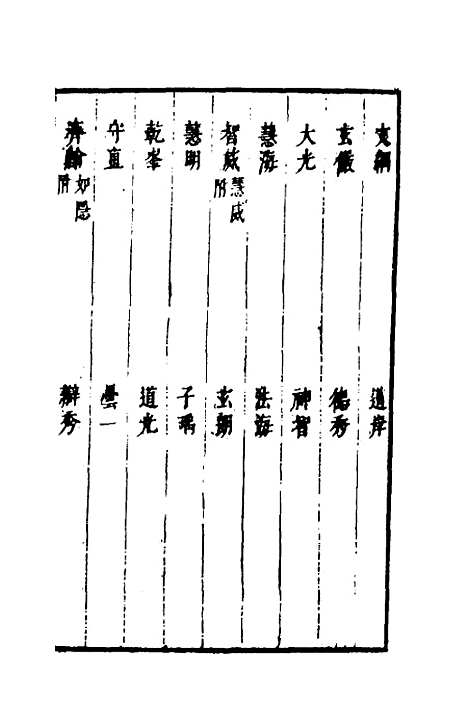 文綱　道岸
玄儼　德秀
大光　神智
慧海　法海
智威慧威附　玄朗
慧明　子瑀
乾峯　道光
守直　曇一
濟翰如隱附　辯秀